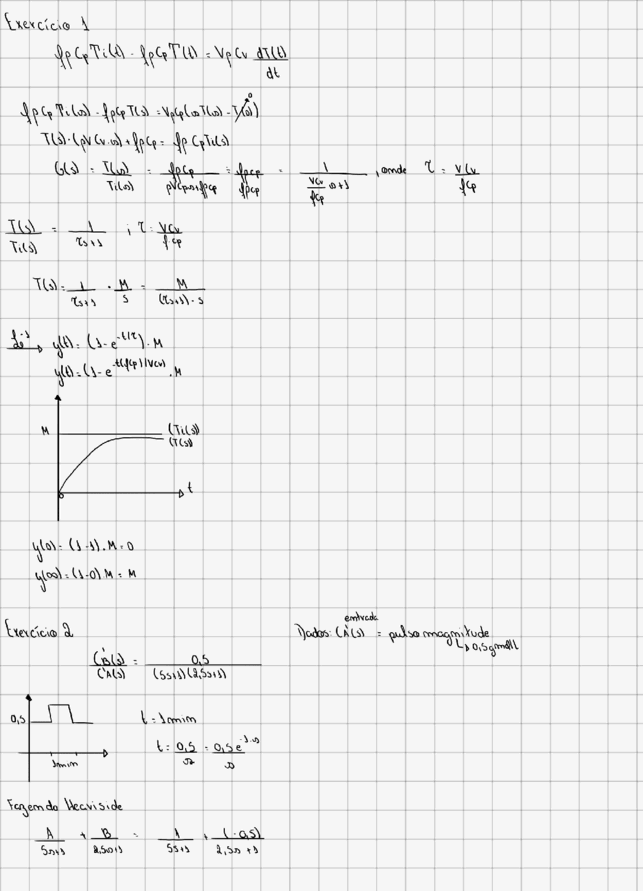 Exercício 1
fρCpTi(t) - fρCpT(t) = VρCv dT(t)/dt
fρCpTi(s) - fρCpT(s) = VρCp(sT(s) - T(0)) 0
T(s)·(ρVCv·s)+fρCp = fρCpTi(s)
G(s) = T(s)/Ti(s) = fρCp/(ρVCps+fρCp) = fρCp/fρCp = 1/(VCv/fCp s+1) , onde τ = VCv/fCp
T(s)/Ti(s) = 1/(τs+1) ; τ = VCv/f·Cp
T(s) = 1/(τs+1) · M/s = M/((τs+1)·s)
L⁻¹ → y(t) = (1-e^(-t/τ))·M
y(t) = (1-e^(-t(fCp)/VCv)·M
M (Ti(s))
(T(s))
0 t
y(0) = (1-1).M = 0
y(∞) = (1-0)M = M
Exercício 2
Dados: C'A(s) entrada = pulso magnitude
↳ 0,5gmol/L
C'B(s)/C'A(s) = 0,5/((5s+1)(2,5s+1))
0,5
1min
t = 1min
t = 0,5/s = 0,5e^(-1·s)/s
Fazendo Heaviside
A/(5s+1) + B/(2,5s+1) = 1/(5s+1) + (-0,5)/(2,5s+1)